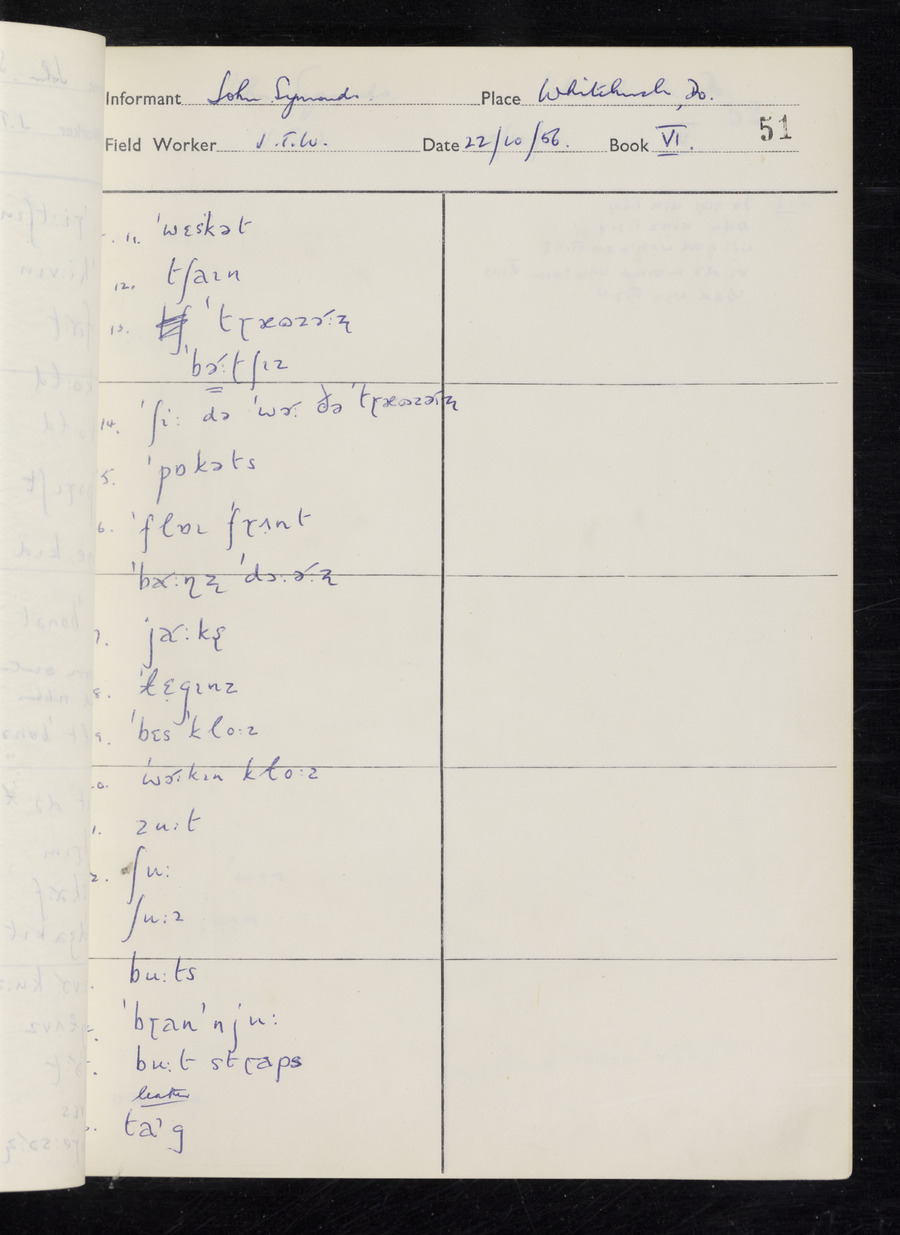 Informant John Symonds. Place Whitchurch, Do.
Field Worker J.T.W. Date 22/10/56. Book VI.
51
11. ˈwɛskət
12. tʃaɪn
13. ˈtɽæʊzəʳːʐ
ˈbəʳːtʃɪz
14. ˈʃiː də ˈwəʳː ðə ˈtɽæʊzəʳːʐ
5. ˈpɒkəts
6. ˈflɒɪ fɽʌnt
7. jaʳːkʂ
8. ˈlɛgɪnz
9. ˈbɛs ˈkloːz
0. ˈwəʳːkɪn kɫoːz
1. zuːt
2. ʃuː
ʃuːz
buːts
ˈbɽanˈnjuː
buːt stɽaps
leather
taˑg